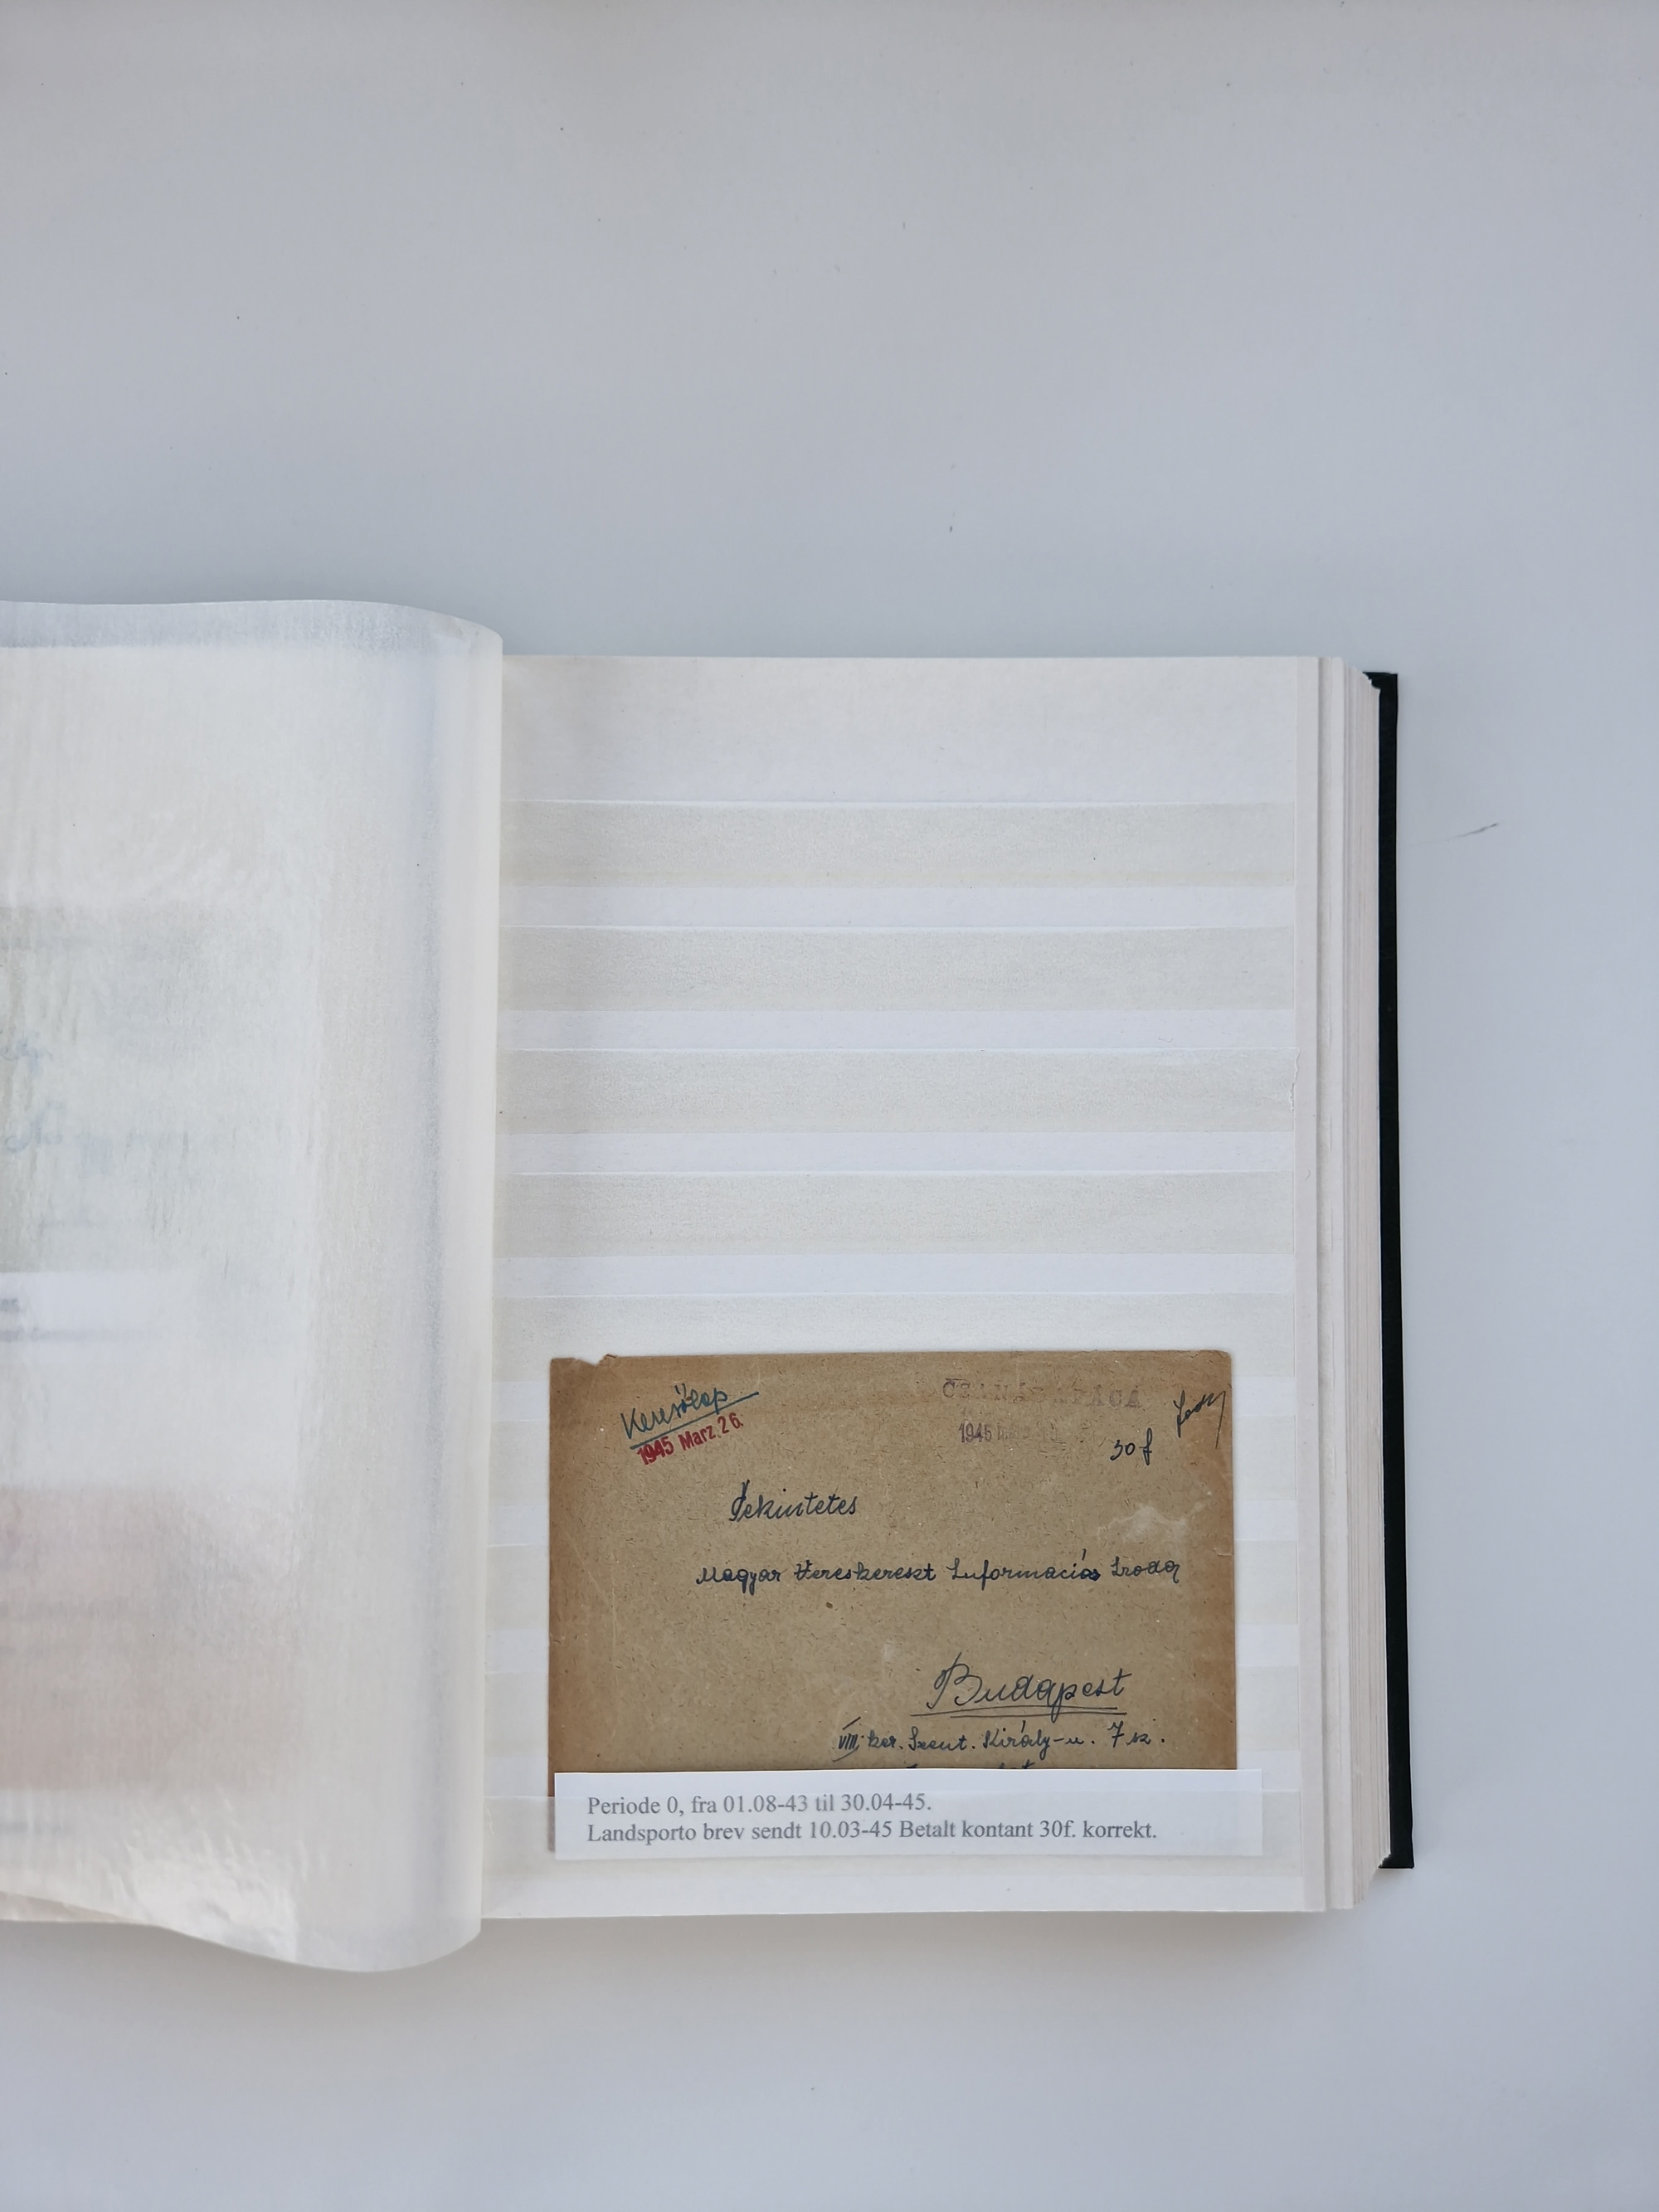 Keresőlap
1945 Marz. 26.
1945
30 f
Tekintetes
Magyar Vereskereszt Informaciós Iroda
Budapest
VIII. ker. Szent. Király-u. 7 sz.
Periode 0, fra 01.08-43 til 30.04-45.
Landsporto brev sendt 10.03-45 Betalt kontant 30f. korrekt.